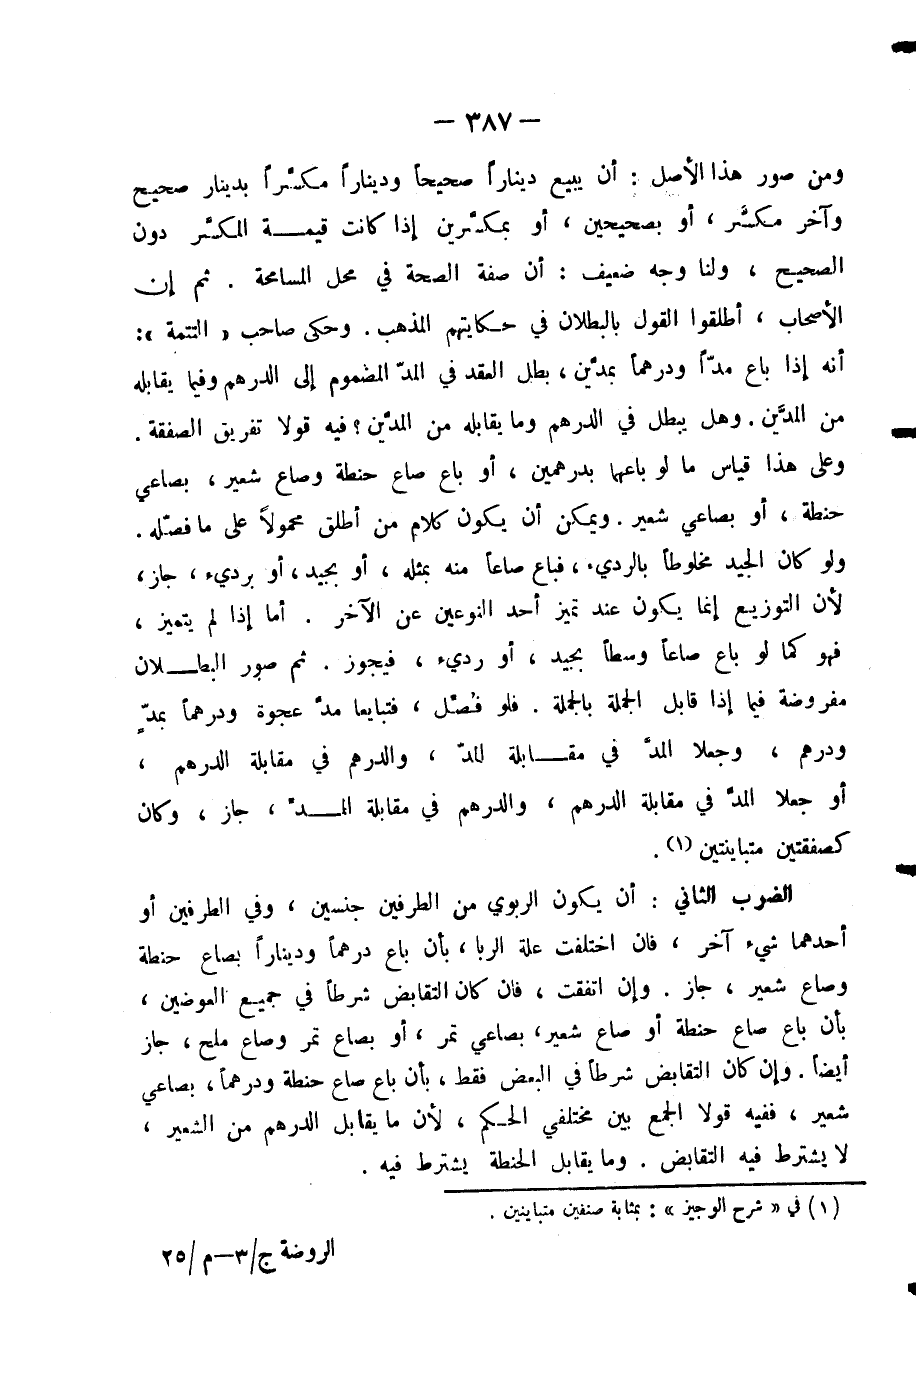 — ٣٨٧ —
ومن صور هذا الأصل : أن يبيع ديناراً صحيحاً وديناراً مكسَّراً بدينار صحيح
وآخر مكسَّر ، أو بصحيحين ، أو بمكسَّرين إذا كانت قيمة المكسَّر دون
الصحيح ، ولنا وجه ضعيف : أن صفة الصحة في محل المسامحة . ثم إن
الأصحاب ، أطلقوا القول بالبطلان في حكايتهم المذهب . وحكى صاحب « التتمة » :
أنه إذا باع مدّاً ودرهماً بمدَّين ، بطل العقد في المدّ المضموم إلى الدرهم وفيما يقابله
من المدَّين . وهل يبطل في الدرهم وما يقابله من المدَّين ؟ فيه قولا تفريق الصفقة .
وعلى هذا قياس ما لو باعهما بدرهمين ، أو باع صاع حنطة وصاع شعير ، بصاعي
حنطة ، أو بصاعي شعير . ويمكن أن يكون كلام من أطلق محمولاً على ما فصّله .
ولو كان الجيد مخلوطاً بالرديء ، فباع صاعاً منه بمثله ، أو بجيد ، أو برديء ، جاز ،
لأن التوزيع إنما يكون عند تميز أحد النوعين عن الآخر . أما إذا لم يتميز ،
فهو كما لو باع صاعاً وسطاً بجيد ، أو رديء ، فيجوز . ثم صور البطلان
مفروضة فيما إذا قابل الجملة بالجملة . فلو فُصّل ، فتبايعا مدَّ عجوة ودرهماً بمدٍّ
ودرهم ، وجعلا المدَّ في مقابلة المدّ ، والدرهم في مقابلة الدرهم ،
أو جعلا المدَّ في مقابلة الدرهم ، والدرهم في مقابلة المدّ ، جاز ، وكان
كصفقتين متباينتين (١) .
الضرب الثاني : أن يكون الربوي من الطرفين جنسين ، وفي الطرفين أو
أحدهما شيء آخر ، فان اختلفت علة الربا ، بأن باع درهماً وديناراً بصاع حنطة
وصاع شعير ، جاز . وإن اتفقت ، فان كان التقابض شرطاً في جميع العوضين ،
بأن باع صاع حنطة أو صاع شعير ، بصاعي تمر ، أو بصاع تمر وصاع ملح ، جاز
أيضاً . وإن كان التقابض شرطاً في البعض فقط ، بأن باع صاع حنطة ودرهماً ، بصاعي
شعير ، ففيه قولا الجمع بين مختلفي الحكم ، لأن ما يقابل الدرهم من الشعير ،
لا يشترط فيه التقابض . وما يقابل الحنطة يشترط فيه .
(١) في « شرح الوجيز » : بمثابة صنفين متباينين .
الروضة ج/٣ــم/٢٥